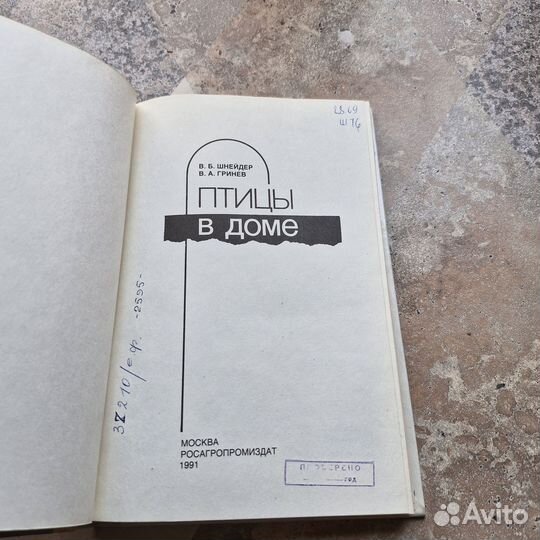 28.69
Ш 76
В. Б. ШНЕЙДЕР
В. А. ГРИНЕВ
ПТИЦЫ
В ДОМЕ
32210/еф. -2595-
МОСКВА
РОСАГРОПРОМИЗДАТ
1991
ПРОВЕРЕНО
год
Avito